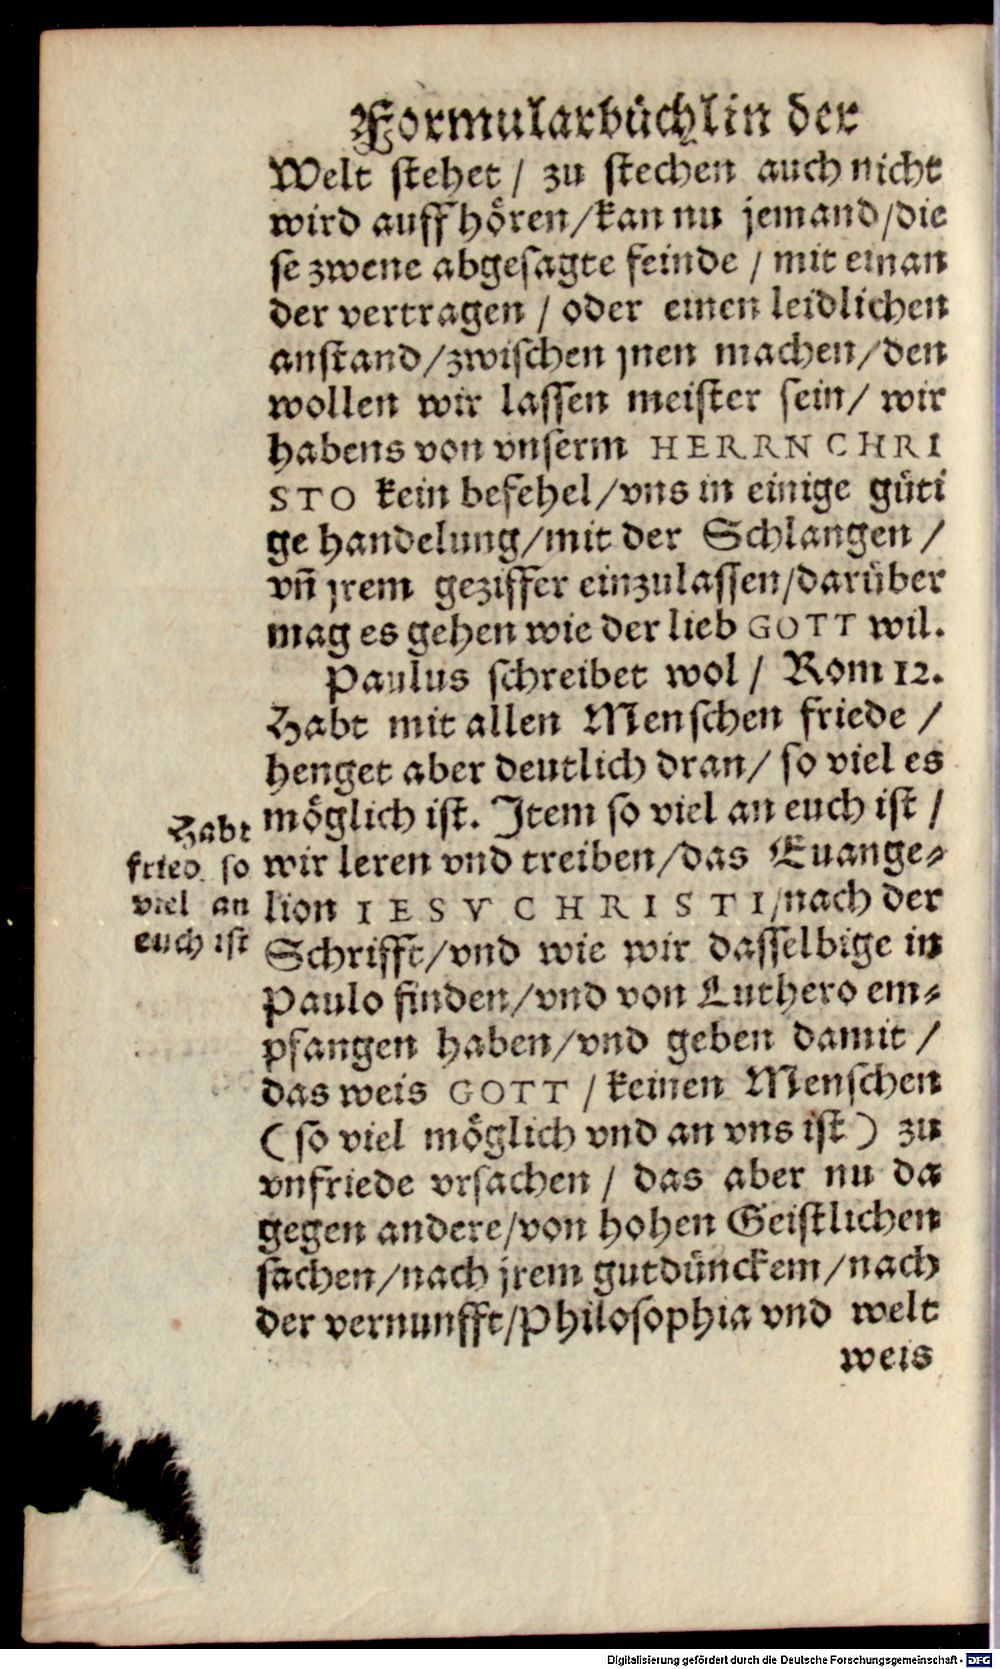 Formularbüchlin der
Welt stehet / zu stechen auch nicht
wird auffhören/kan nu jemand/die
se zwene abgesagte feinde / mit einan
der vertragen / oder einen leidlichen
anstand/zwischen jnen machen/den
wollen wir lassen meister sein/ wir
habens von vnserm HERRN CHRI
STO kein befehel/vns in einige güti
ge handelung/mit der Schlangen /
vn̄ jrem geziffer einzulassen/darüber
mag es gehen wie der lieb GOTT wil.
Paulus schreibet wol / Rom 12.
Habt mit allen Menschen friede /
henget aber deutlich dran/ so viel es
möglich ist. Item so viel an euch ist /
wir leren vnd treiben/das Euange-
lion IESV CHRISTI/nach der
Schrifft/vnd wie wir dasselbige in
Paulo finden/vnd von Luthero em-
pfangen haben/vnd geben damit /
das weis GOTT / keinen Menschen
(so viel möglich vnd an vns ist) zu
vnfriede vrsachen / das aber nu da
gegen andere/von hohen Geistlichen
sachen/nach jrem gutdünckem/nach
der vernunfft/Philosophia vnd welt
weis
Habt
fried so
viel an
euch ist
Digitalisierung gefördert durch die Deutsche Forschungsgemeinschaft - DFG